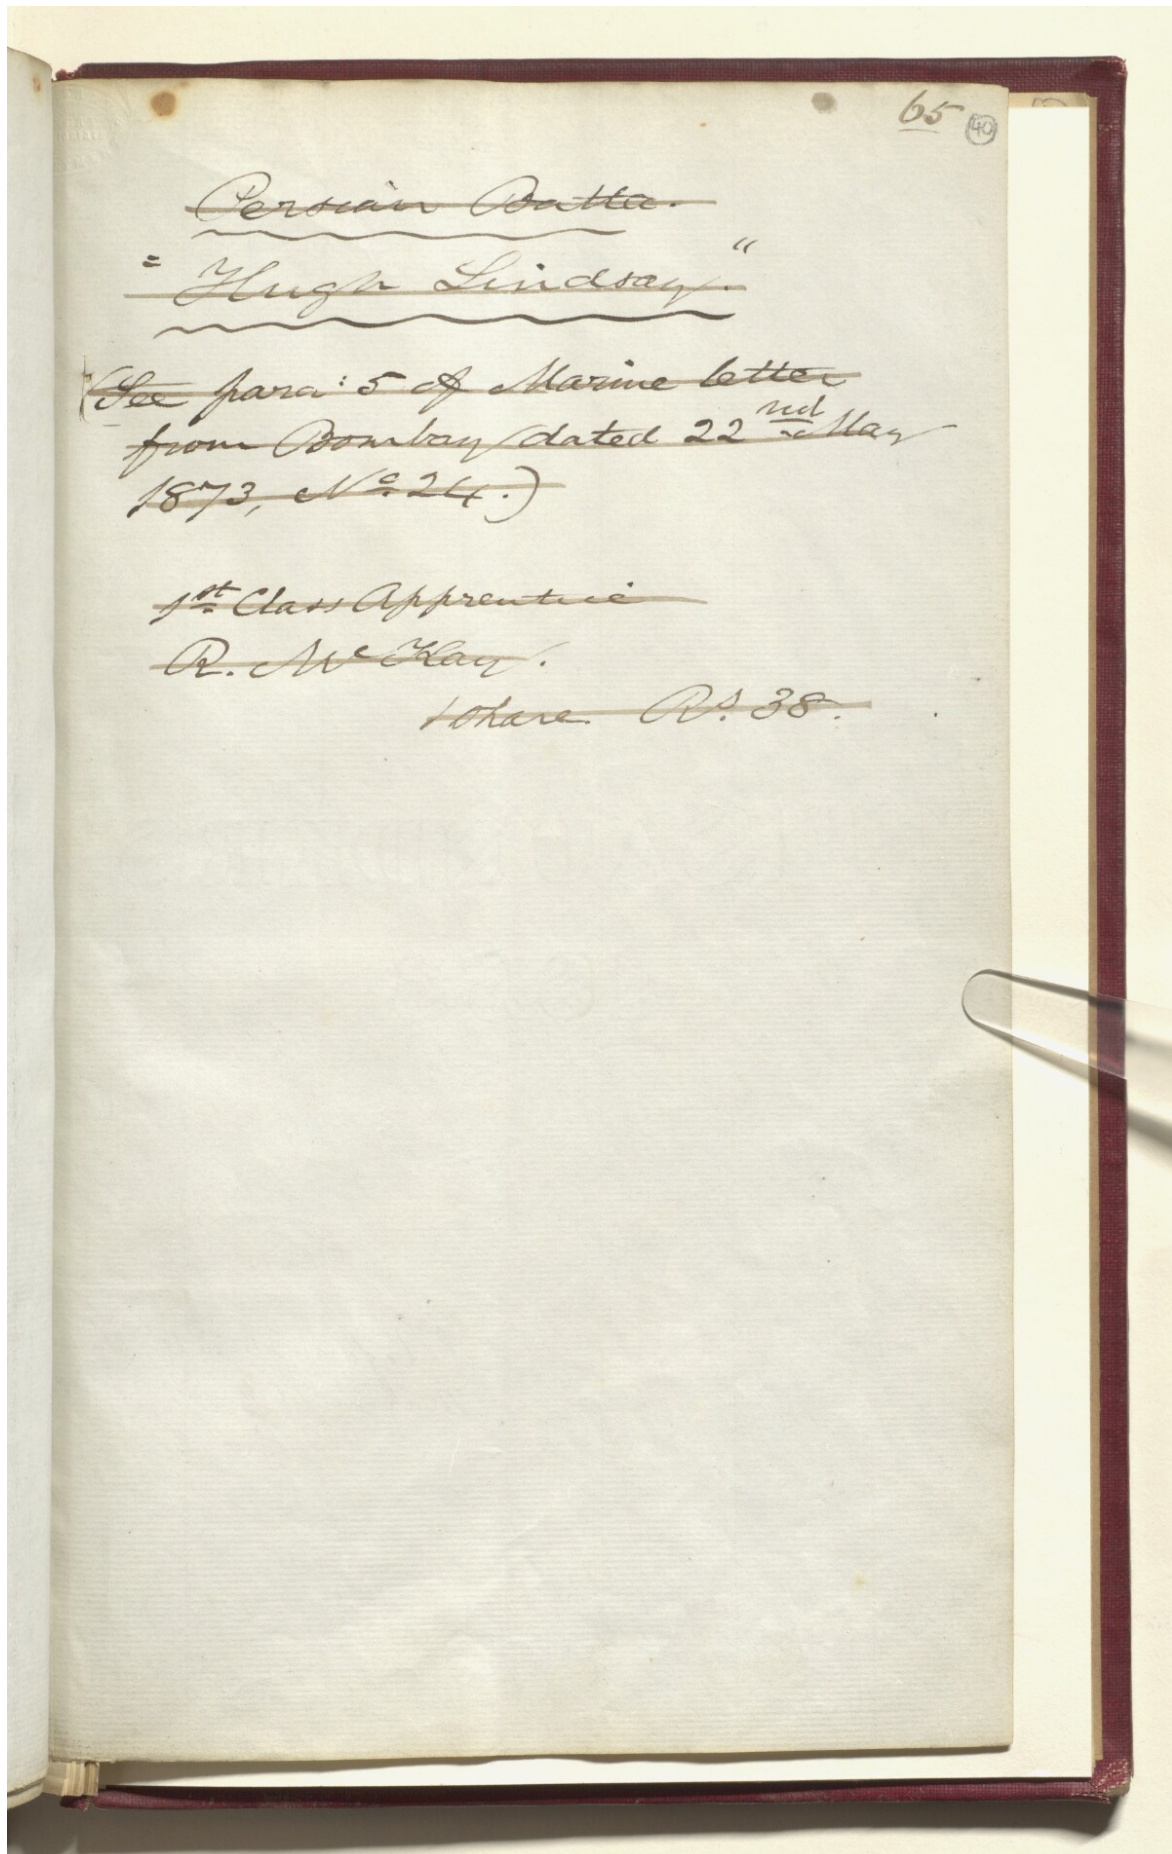 65
40
Persian Batta.
"Hugh Lindsay."
(See para: 5 of Marine letter
from Bombay dated 22nd May
1873, No. 24.)
1st Class Apprentice
R. McKay.
1 share. Rs. 38.